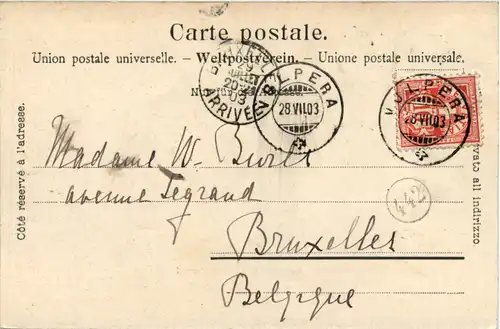 Carte postale.
Union postale universelle. – Weltpostverein. – Unione postale universale.
Nur für die Adresse.
BRUXELLES
29
JUILLET
1903
ARRIVÉE
VULPERA
28.VII.03
VULPERA
28.VII.03
Côté réservé à l'adresse.
Madame W.
avenue Legrand
442
Bruxelles
Belgique
all'indirizzo.